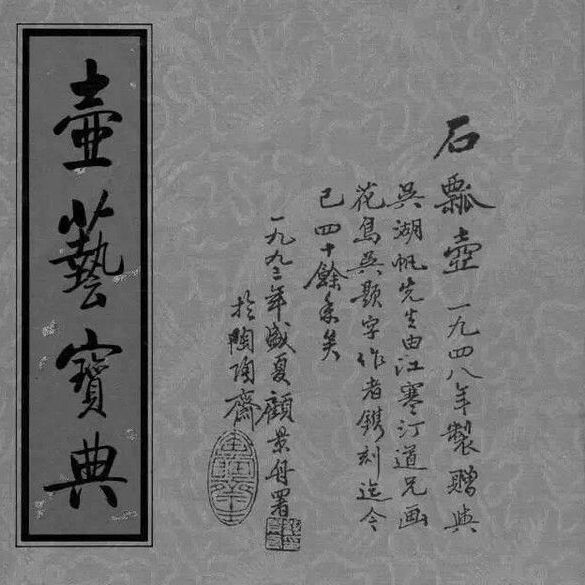 壺藝寶典
石瓢壺 一九四八年製贈與
吳湖帆先生由江寒汀道兄画
花鳥吳題字作者鐫刻迄今
已四十餘年矣
一九九二年盛夏顧景舟署
於陶陶齋